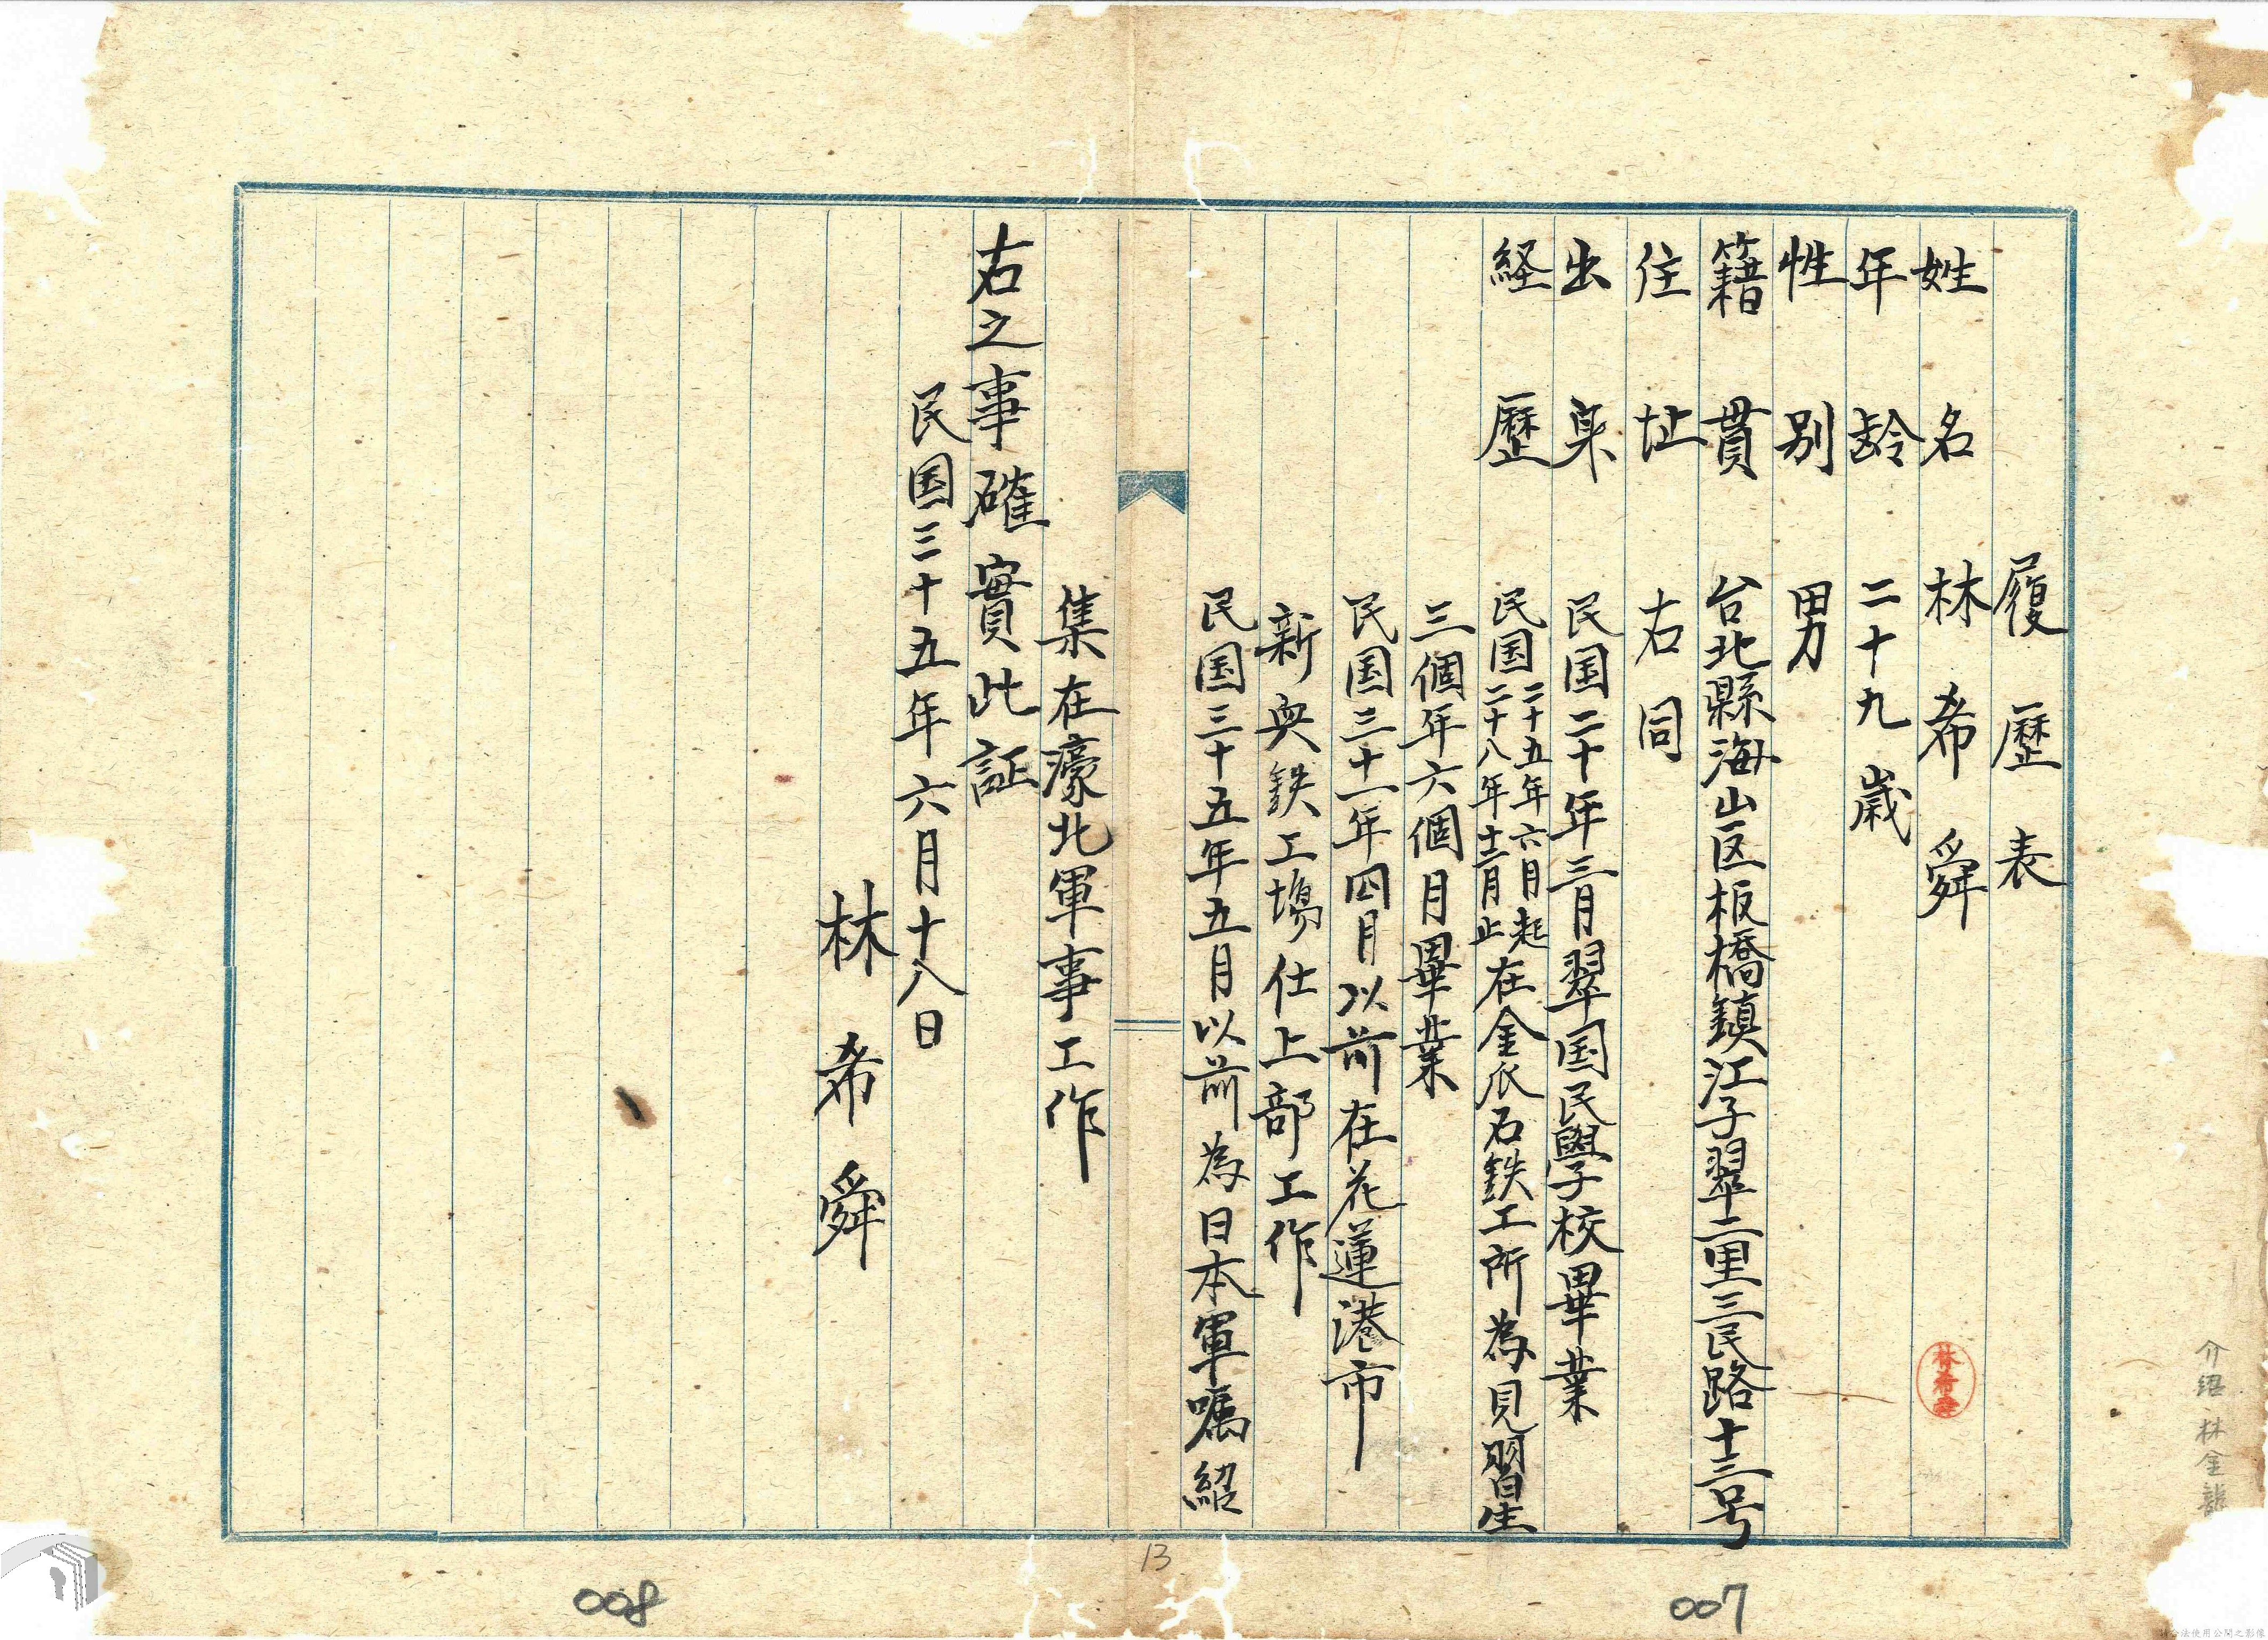 履歷表
姓名 林希舜
年齡 二十九歲
性別 男
籍貫 台北縣海山区板橋鎮江子翠二里三民路十三号
住址 右同
出身 民国二十年三月翠国民學校畢業
経歷 民国二十五年六月起二十八年十二月止在金瓜石鉄工所為見習生
三個年六個月畢業
民国三十一年四月以前在花蓮港市
新興鉄工場仕上部工作
民国三十五年五月以前為日本軍嘱紹
集在濠北軍事工作
右之事確實此証
民国三十五年六月十八日
林希舜
林希舜
介紹 林金
13
007
008